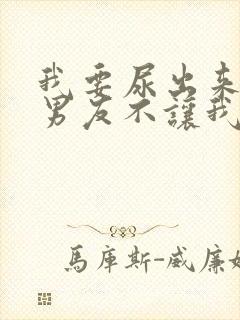 我要尿出来
男友不讓我
馬庫斯-威廉